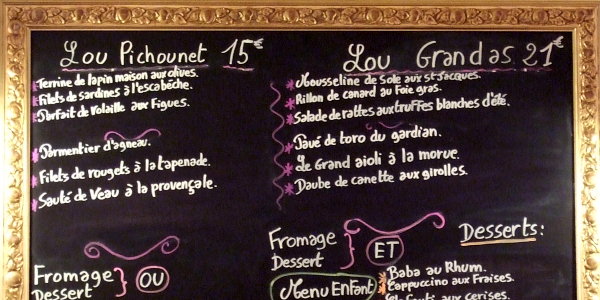 Lou Pichounet 15€
Terrine de lapin maison aux olives.
Filets de sardines à l'escabèche.
Parfait de Volaille aux Figues.
Parmentier d'agneau.
Filets de rougets à la tapenade.
Sauté de Veau à la provençale.
Fromage
Dessert
OU
Lou Grandas 21€
Mousseline de Sole aux st Jacques.
Rillon de canard au Foie gras.
Salade de rattes aux truffes blanches d'été.
Pavé de toro du gardian.
Le Grand aïoli à la morue.
Daube de canette aux girolles.
Fromage
Dessert
ET
Menu EnFant
Desserts:
Baba au Rhum.
Cappuccino aux Fraises.
aux cerises.